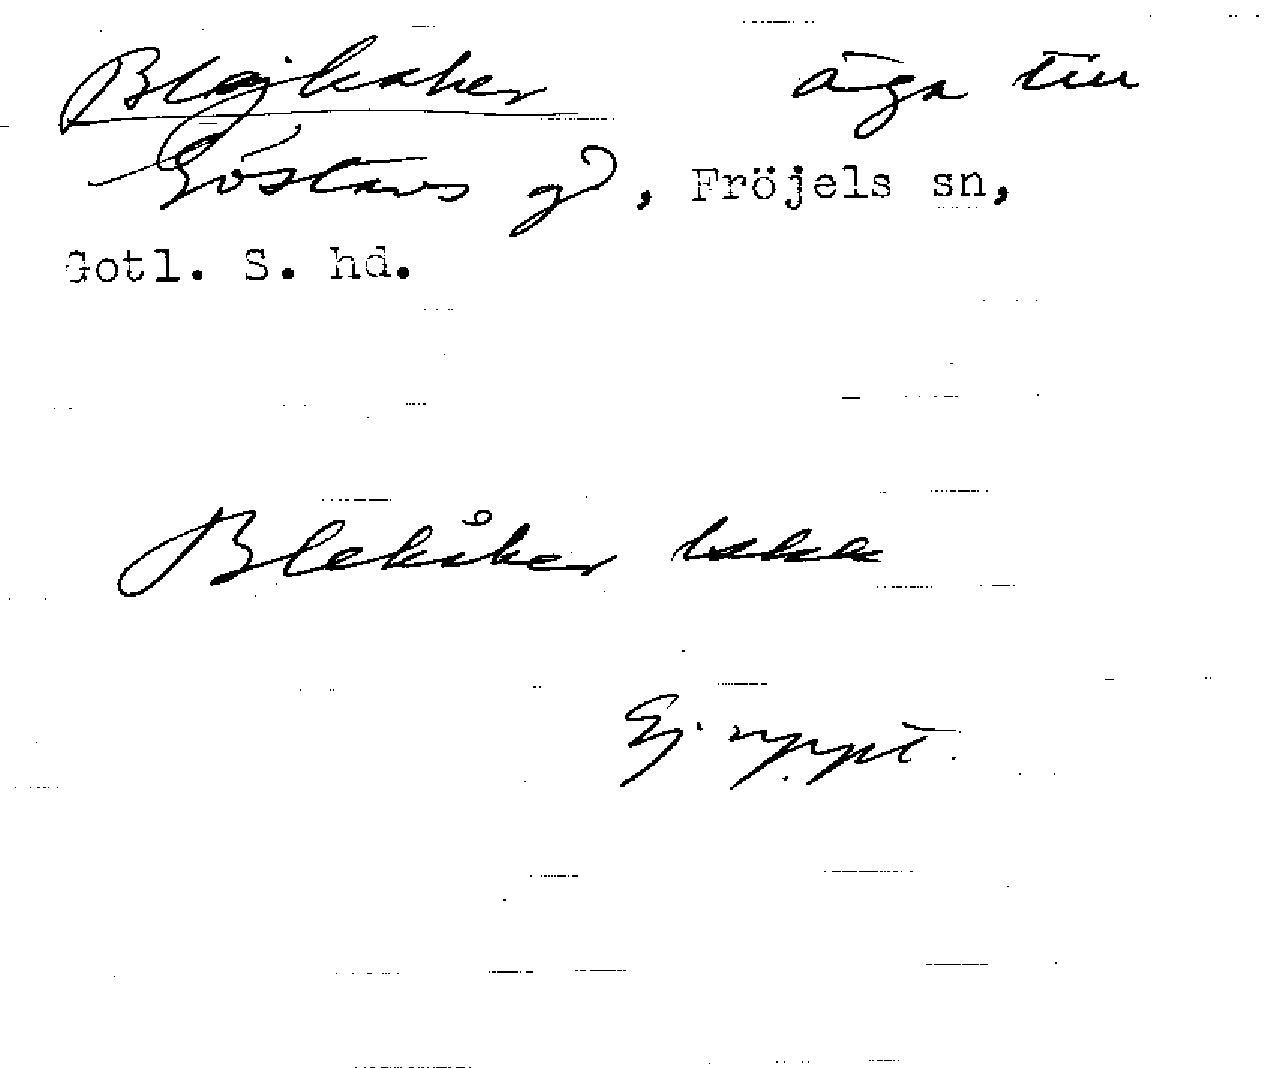 Blajkaker äga till
Göstavs gd, Fröjels sn,
Gotl. S. hd.
Blekåker
Ej uppt.